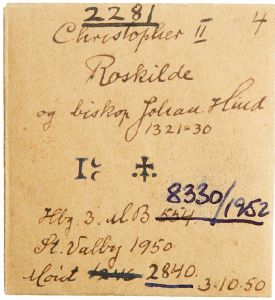 2281
4
Christopher II
Roskilde
og biskop Johan Hind
1321=30
8330/1952
Hbg. 3. MB 554.
St. Valby 1950
2840. 3-10-50